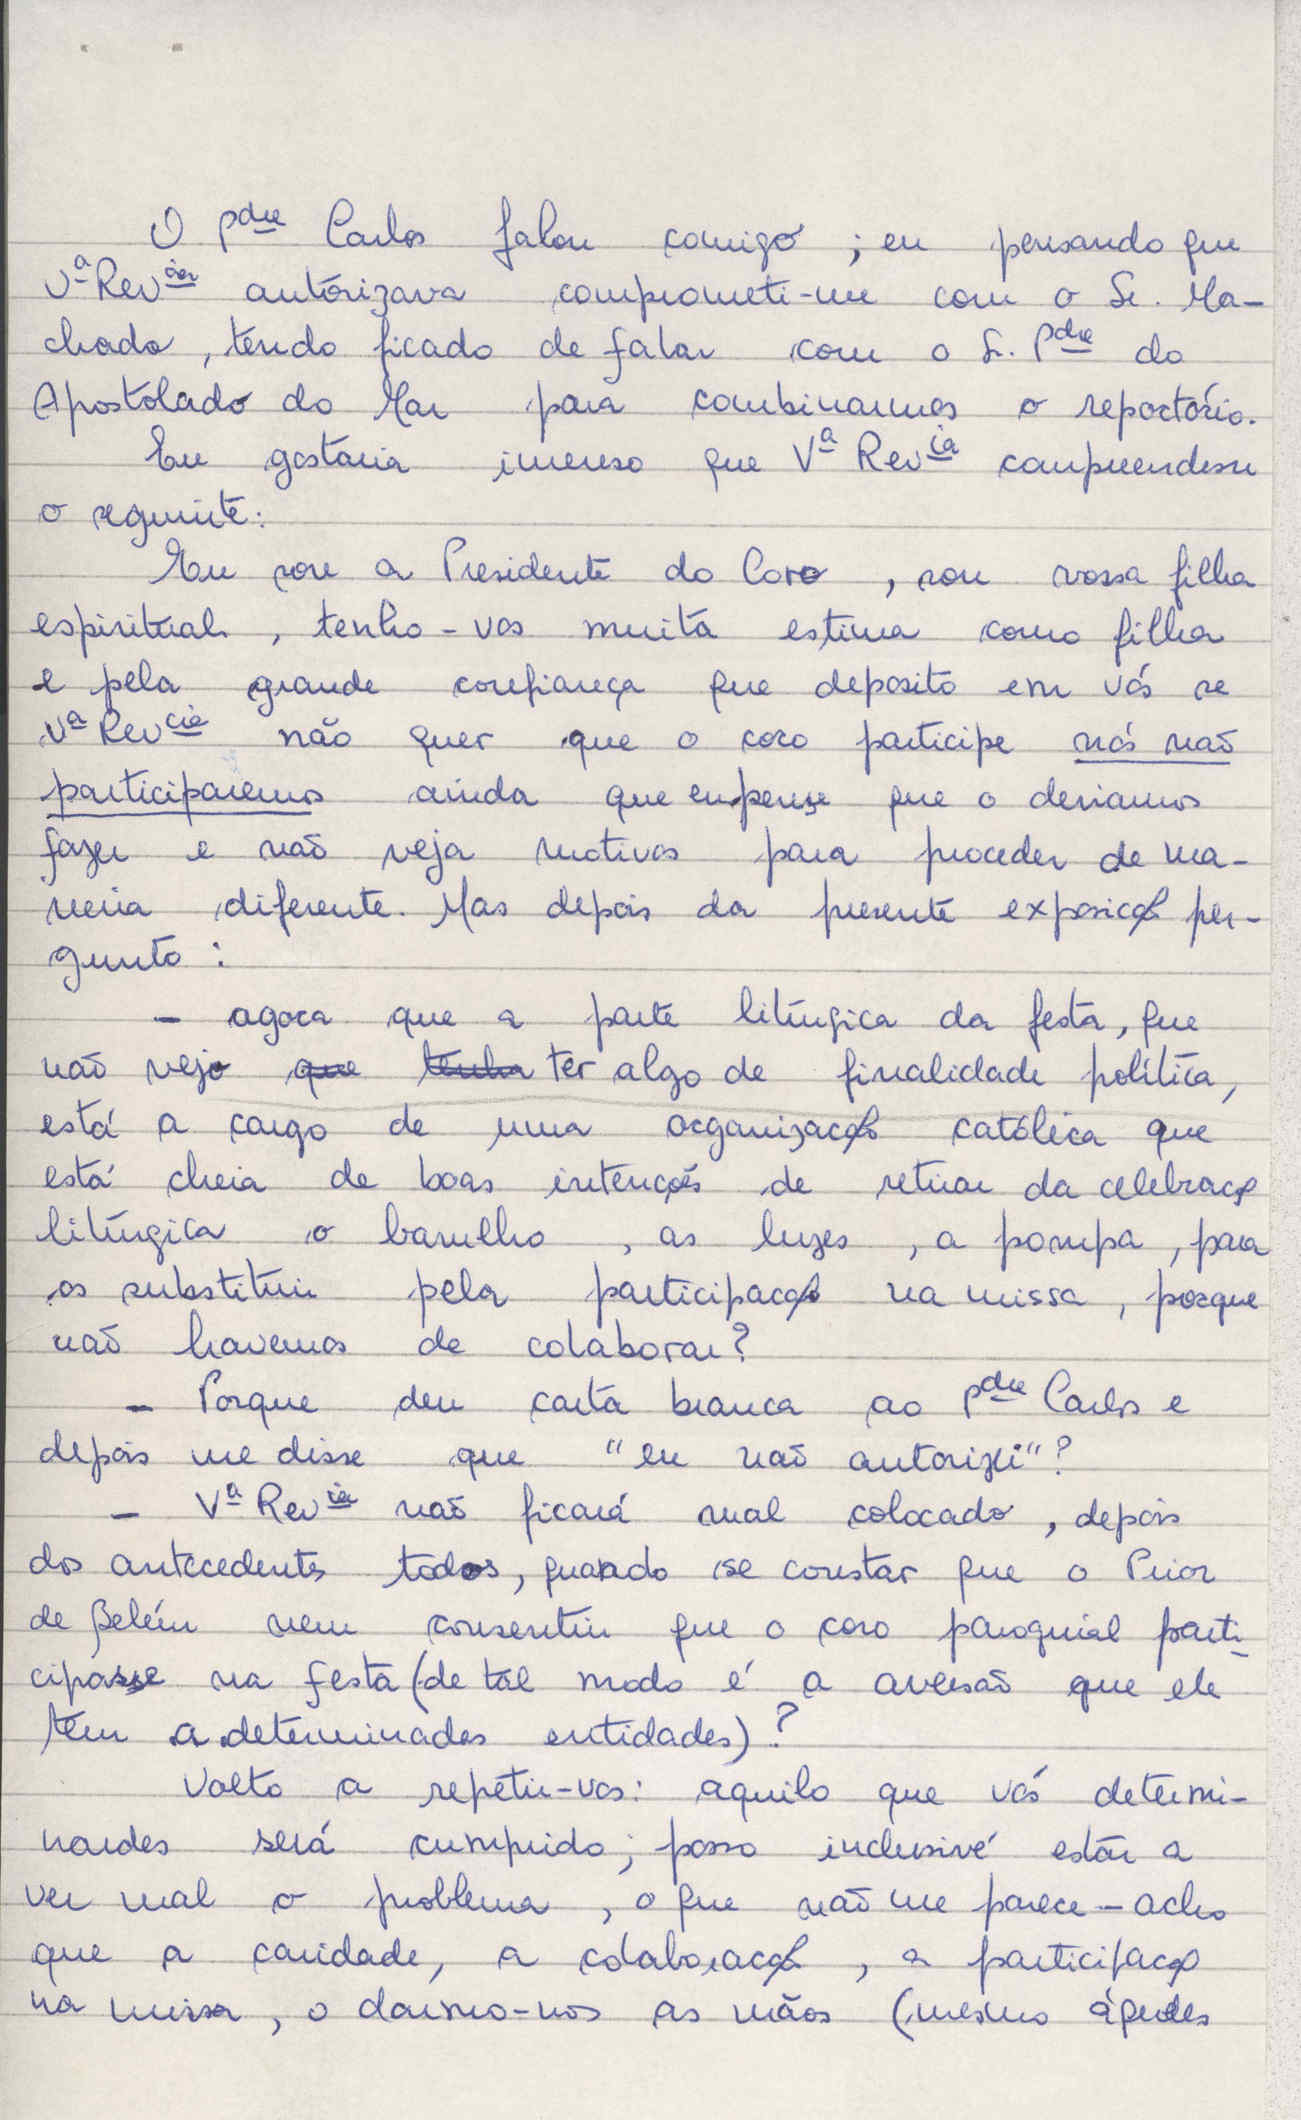 O Pdre Carlos falou comigo ; eu pensando que
Vª Revcia autorizava comprometi-me com o Sr. Ma-
chado, tendo ficado de falar com o Sr. Pdre do
Apostolado do Mar para combinarmos o reportório.
Eu gostaria imenso que Vª Revcia compreendesse
o seguinte:
Eu sou a Presidente do Coro, sou vossa filha
espiritual, tenho-vos muita estima como filha
e pela grande confiança que deposito em vós se
Vª Revcia não quer que o coro participe nós não
participaremos ainda que eu pense que o deviamos
fazer e não veja motivos para proceder de ma-
neira diferente. Mas depois da presente exposição per-
gunto:
- agora que a parte litúrgica da festa, que
não vejo que tenha ter algo de finalidade política,
está a cargo de uma organização católica que
está cheia de boas intenções de retirar da celebração
litúrgica o barulho, as luzes, a pompa, para
os substituir pela participação na missa, porque
não havemos de colaborar?
- Porque deu carta branca ao Pdre Carlos e
depois me disse que "eu não autorizei"?
- Vª Revcia não ficará mal colocado, depois
dos antecedentes todos, quando se constar que o Prior
de Belém nem consentiu que o coro paroquial parti-
cipasse na festa (de tal modo é a aversão que ele
tem a determinadas entidades)?
Volto a repetir-vos: aquilo que vós determi-
nardes será cumprido; posso inclusivé estar a
ver mal o problema, o que não me parece - acho
que a caridade, a colaboração, a participação
na missa, o darmo-nos as mãos (mesmo àqueles